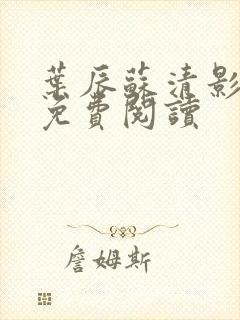 葉辰蘇清影
免費閱讀
詹姆斯